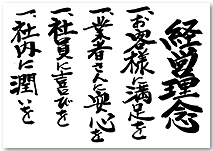 経営理念
一、お客様に満足を
一、業者さんに安心を
一、社員に喜びを
一、社内に潤いを